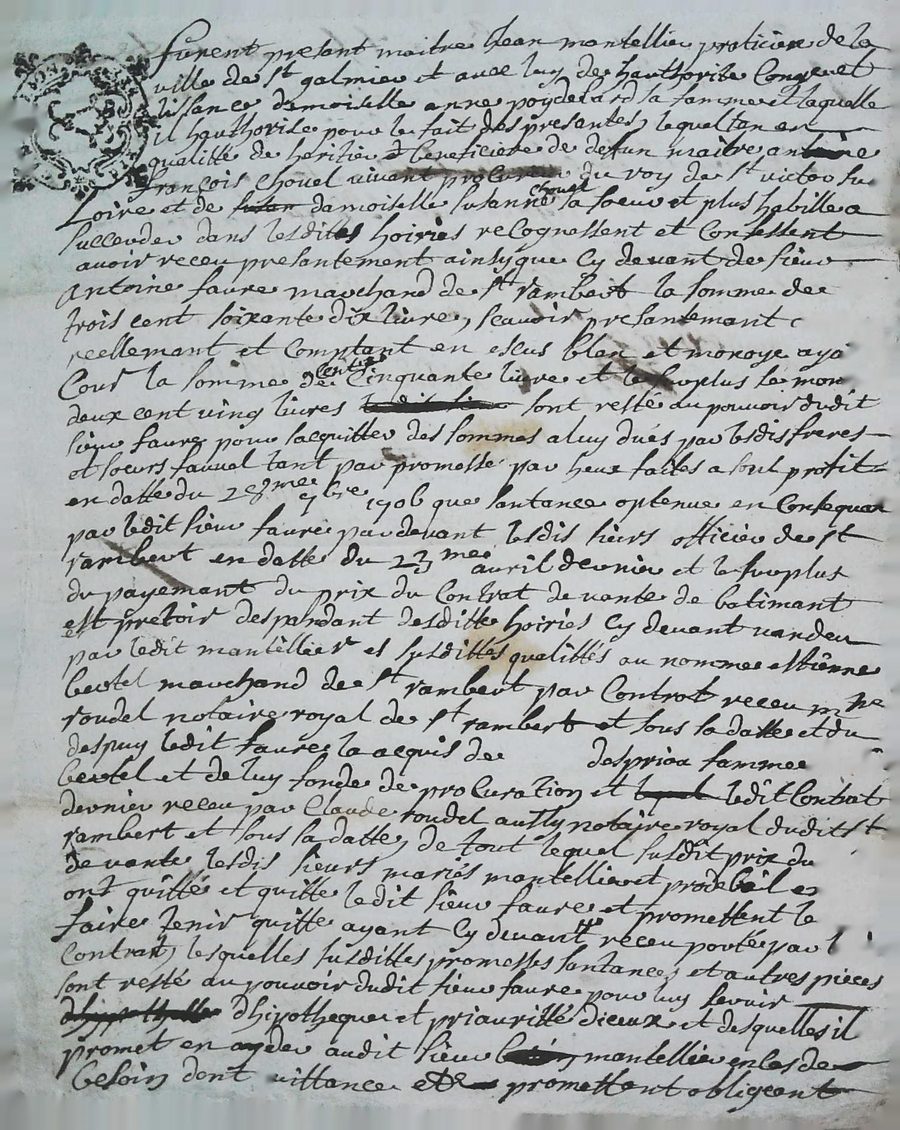 furent presant maitre Jean mantellier praticien de la
ville de St galmier et avec luy de hauthorite Conge et
lissance damoiselle anne poydebard sa famme et laquelle
il hauthorise pour le fait des presantes, lequel tan en
qualitté de héritier Beneficiere de defun maitre antoine
françois chovel vivant procureur du roy de St victor sur
Loire et de damoiselle susanne chovel sa soeur et plus habille a
succeder dans lesdites hoiries recognessent et Confessent
avoir receu presantement ainsy que Cy devant de sieur
Antoine faure marchand de St rambert la somme de
trois cent soixante dix livres, scavoir presantemant
reellemant et Comptant en escus blan et monoye ayan
Cour la somme de Cent Cinquante livre et le surplus se mon
deux cent ving livres sont resté au pouvoir dudit
sieur faure pour sacquitter des sommes a luy dués par lesdis freres
et soeurs fauvel tant par promesse par heux faites a sout profit
en datte du 28me 7bre 1706 que santance optenue en Consequan
par ledit sieur faure par devant lesdis sieurs officier de St
rambert en datte du 23me avril dernier et le surplus
du payemant du prix du Contrat de vante de batimant
est pretoir despandant desditte hoiries Cy devant vandeu
par ledit mantellier es susdittes qualittés au nomme estienne
bertel marchand de St rambert par Contrat receu me
roudel notaire royal de St rambert et sous sa datte et du
despuy ledit faure la acquis de desprion famme
bertel et de luy fonde de proCuration et ledit Contrat
dernier receu par Claude roudel aussy notaire royal dudit St
rambert et sous sa datte, de tout lequel susdit prix du
de vante lesdis sieurs mariés mantellier et
ont quitté et quitte ledit sieur faure et promettent le
faire tenir quitte ayant Cy devant receu porté par l
Contrat, lesquelles susdittes promesses santance, et autres pieces
sont resté au pouvoir dudit sieur faure pour luy servir
dhipotheque et priauritté dieux et desquelles il
promet en ayder audit sieur mantellier en cas de
besoin dont vittance etc promettent obligeent